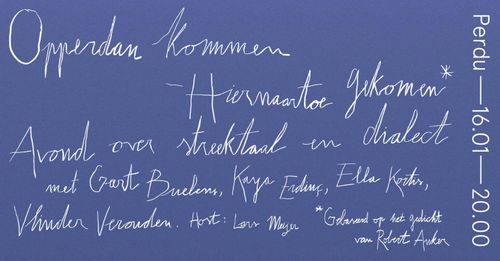 Opperdan kommen
– Hiernaartoe gekomen*
Avond over streektaal en dialect
met Geert Buelens, Kaya Erdinç, Ella Kochs,
Vlinder Verouden. Host: Lars Meijer
*Gebaseerd op het gedicht
van Robert Anker
Perdu — 16.01 — 20.00